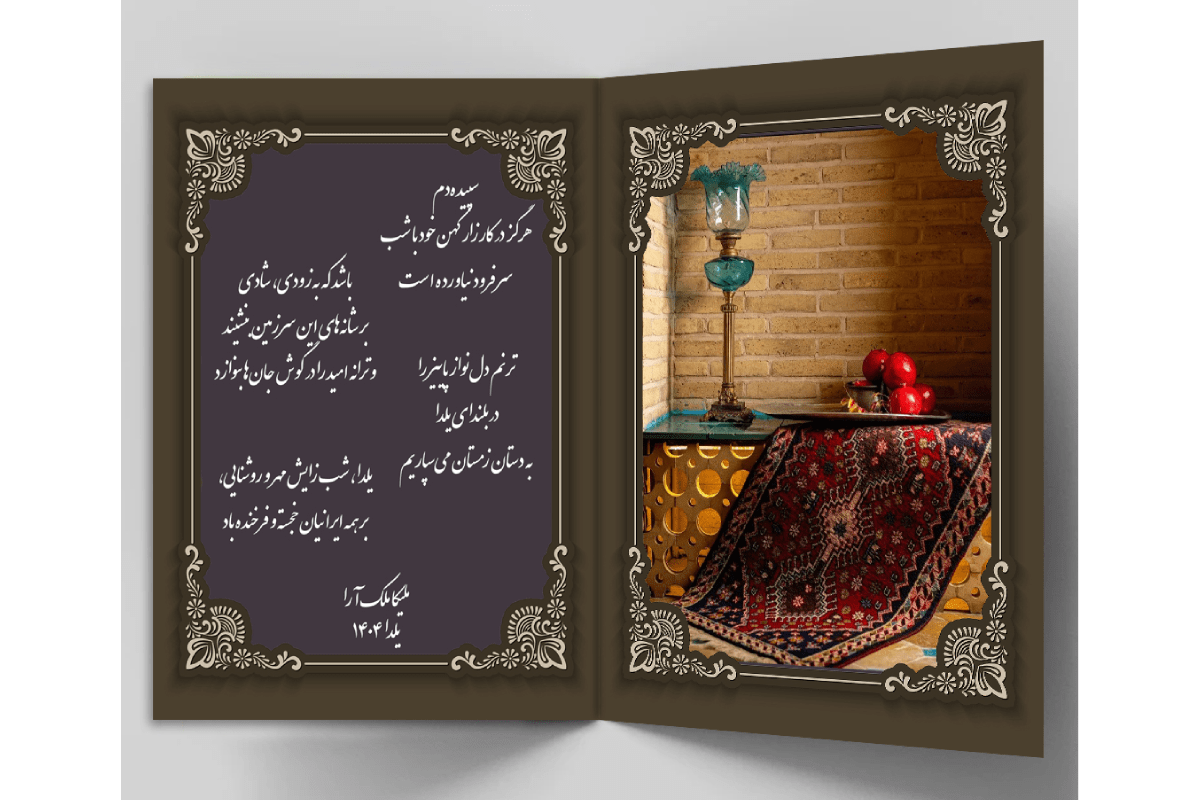 سپیده‌دم
هرگز در کارزار کهن خود با شب
سر فرود نیاورده است
ترنم دل نواز پاییز را
در بلندای یلدا
به دستان زمستان می‌سپاریم
باشد که به زودی، شادی
بر شانه‌های این سرزمین بنشیند
و ترانه امید را در گوش جان‌ها بنوازد
یلدا، شب زایش مهر و روشنایی،
بر همه ایرانیان خجسته و فرخنده باد
ملیکا ملک‌آرا
یلدا ۱۴۰۴